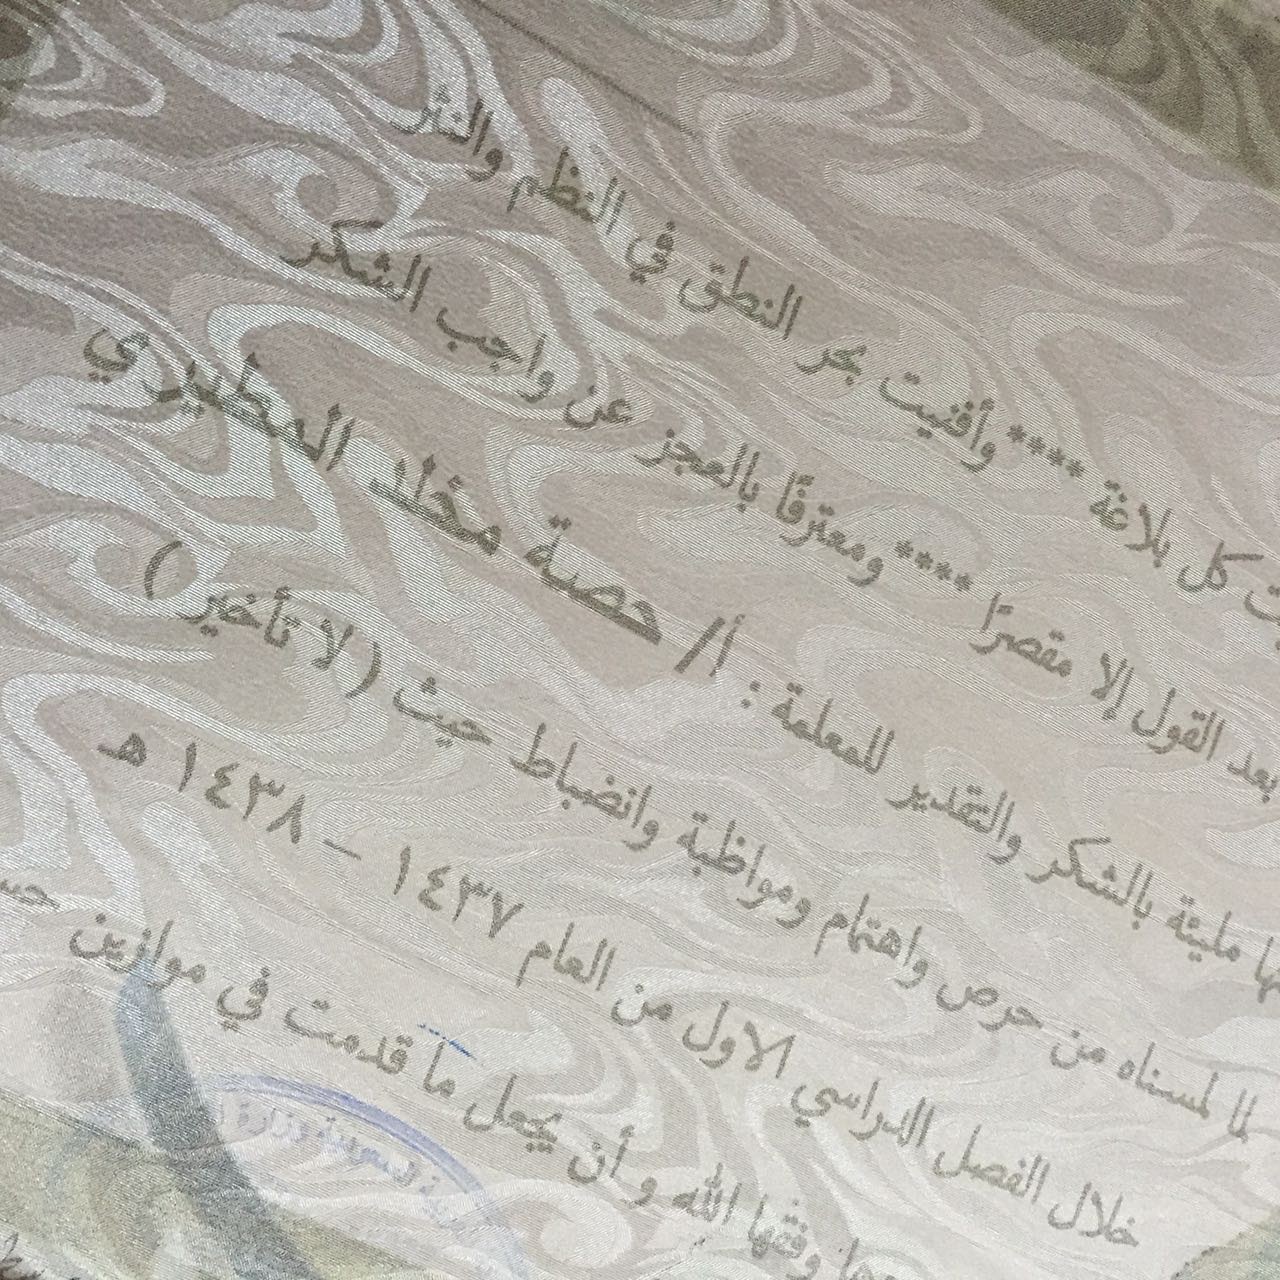 كل بلاغة **** وأفنيت بحر النطق في النظم والنثر
بعد القول إلا مقصرًا **** ومعترفًا بالعجز عن واجب الشكر
مليئة بالشكر والتقدير للمعلمة : أ/ حصة مخلد المطيري
لما لمسناه من حرص واهتمام ومواظبة وانضباط حيث ( لا تأخير )
خلال الفصل الدراسي الاول من العام ١٤٣٧ – ١٤٣٨ هـ
وفقها الله و أن يجعل ما قدمت في موازين
السعودية وزارة